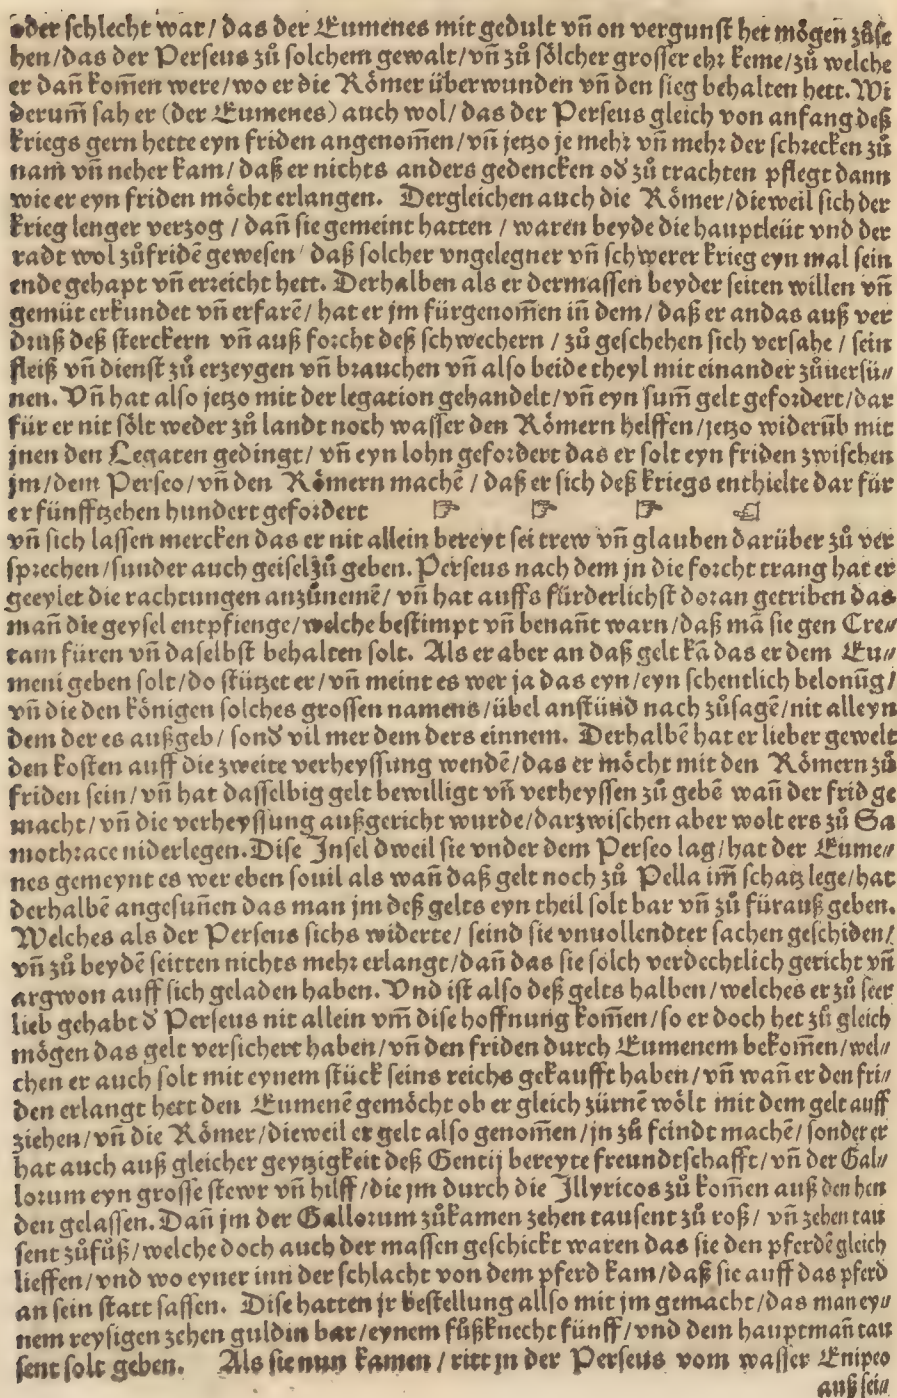 oder schlecht war/ das der Eumenes mit gedult vñ on vergunst het mögen zůse
hen/das der Perseus zů solchem gewalt/vñ zů sölcher grosser ehr keme/zů welche
er dañ kom̃en were/wo er die Römer überwunden vñ den sieg behalten hett. Wi
derum̃ sah er (der Eumenes) auch wol/ das der Perseus gleich von anfang deß
kriegs gern hette eyn friden angenom̃en/vñ jetzo je mehr vñ mehr der schrecken zů
nam vñ neher kam/ daß er nichts anders gedencken od̕ zů trachten pflegt dann
wie er eyn friden möcht erlangen. Dergleichen auch die Römer/dieweil sich der
krieg lenger verzog / dañ sie gemeint hatten / waren beyde die hauptleüt vnd der
radt wol zůfridẽ gewesen/ daß solcher vngelegner vñ schwerer krieg eyn mal sein
ende gehapt vñ erreicht hett. Derhalben als er dermassen beyder seiten willen vñ
gemüt erkundet vñ erfarẽ/ hat er jm fürgenom̃en iñ dem/ daß er andas auß ver
druß deß sterckern vñ auß forcht deß schwechern / zů geschehen sich versahe / sein
fleiß vñ dienst zů erzeygen vñ brauchen vñ also beide theyl mit einander zůuersü⸗
nen. Vñ hat also jetzo mit der legation gehandelt/vñ eyn sum̃ gelt gefordert/dar
für er nit sölt weder zů landt noch wasser den Römern helffen/jetzo widerüb mit
jnen den Legaten gedingt/ vñ eyn lohn gefordert das er solt eyn friden zwischen
jm/dem Perseo/vñ den Römern machẽ / daß er sich deß kriegs enthielte dar für
er fünfftzehen hundert gefordert ☞ ☞ ☞ ☜
vñ sich lassen mercken das er nit allein bereyt sei trew vñ glauben darüber zů ver
sprechen/sunder auch geisel zů geben. Perseus nach dem jn die forcht trang hat er
geeylet die rachtungen anzůnemẽ/ vñ hat auffs fürderlichst doran getriben das
mañ die geysel entpfienge/welche bestimpt vñ benañt warn/daß mã sie gen Cre⸗
tam füren vñ daselbst behalten solt. Als er aber an daß gelt kã das er dem Eu⸗
meni geben solt/do stützet er/ vñ meint es wer ja das eyn/eyn schentlich belonũg/
vñ die den königen solches grossen namens/übel anstünd nach zůsagẽ/nit alleyn
dem der es außgeb/ sond̕ vil mer dem ders einnem. Derhalbẽ hat er lieber gewelt
den kosten auff die zweite verheyssung wendẽ/das er möcht mit den Römern zů
friden sein/vñ hat dasselbig gelt bewilligt vñ verheyssen zů gebẽ wañ der frid ge
macht/vñ die verheyssung außgericht wurde/darzwischen aber wolt ers zů Sa
mothrace niderlegen. Dise Insel dweil sie vnder dem Perseo lag/hat der Eume⸗
nes gemeynt es wer eben souil als wañ daß gelt noch zů Pella im̃ schatz lege/hat
derhalbẽ angesuñen das man jm deß gelts eyn theil solt bar vñ zů fürauß geben.
Welches als der Perseus sichs widerte/ seind sie vnuollendter sachen geschiden/
vñ zů beydẽ seitten nichts mehr erlangt/dañ das sie sölch verdechtlich gericht vñ
argwon auff sich geladen haben. Vnd ist also deß gelts halben/welches er zů seer
lieb gehabt d̕ Perseus nit allein vm̃ dise hoffnung kom̃en/so er doch het zů gleich
mögen das gelt versichert haben/vñ den friden durch Eumenem bekom̃en/wel⸗
chen er auch solt mit eynem stück seins reichs gekaufft haben/ vñ wañ er den fri⸗
den erlangt hett den Eumenẽ gemöcht ob er gleich zürnẽ wölt mit dem gelt auff
ziehen/vñ die Römer/dieweil er gelt also genom̃en/jn zů feindt machẽ/ sonder er
hat auch auß gleicher geytzigkeit deß Gentij bereyte freundtschafft/vñ der Gal⸗
lorum eyn grosse stewr vñ hilff/die jm durch die Jllyricos zů kom̃en auß den hen
den gelassen. Dañ jm der Gallorum zůkamen zehen tausent zů roß/ vñ zehen tau
sent zůfůß/welche doch auch der massen geschickt waren das sie den pferdẽ gleich
lieffen/vnd wo eyner inn der schlacht von dem pferd kam/daß sie auff das pferd
an sein statt sassen. Dise hatten jr bestellung allso mit jm gemacht/das man ey⸗
nem reysigen zehen guldin bar/eynem fůßknecht fünff/vnd dem hauptmañ tau
sent solt geben. Als sie nun kamen / ritt jn der Perseus vom wasser Enipeo
auß sei⸗